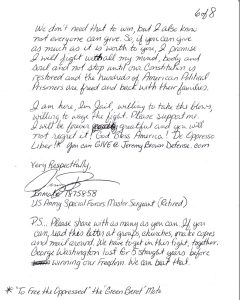 6 of 8
We don't need that to win, but I also know
not everyone can give. So, if you can give
as much as it is worth to you, I promise
I will fight with all my mind, body and
soul and not stop until our Constitution is
restored and the hundreds of American Political
Prisoners are freed and back with their families.
I am here, in Jail, willing to take the blows,
willing to wage the fight. Please support me.
I will be forever grateful and you will
not regret it! God Bless America! De Oppresso
Liber!*
Very Respectfully,
Inmate
US Army Special Forces Master Sergeant (Retired)
P.S. Please share with as many as you can. If you
can, read this letter at groups, churches, make copies
and mail around. We have to get in this fight, together.
George Washington lost for 5 straight years before
winning our Freedom. We can beat that.
* "To Free the Oppressed" the "Green Beret" Motto